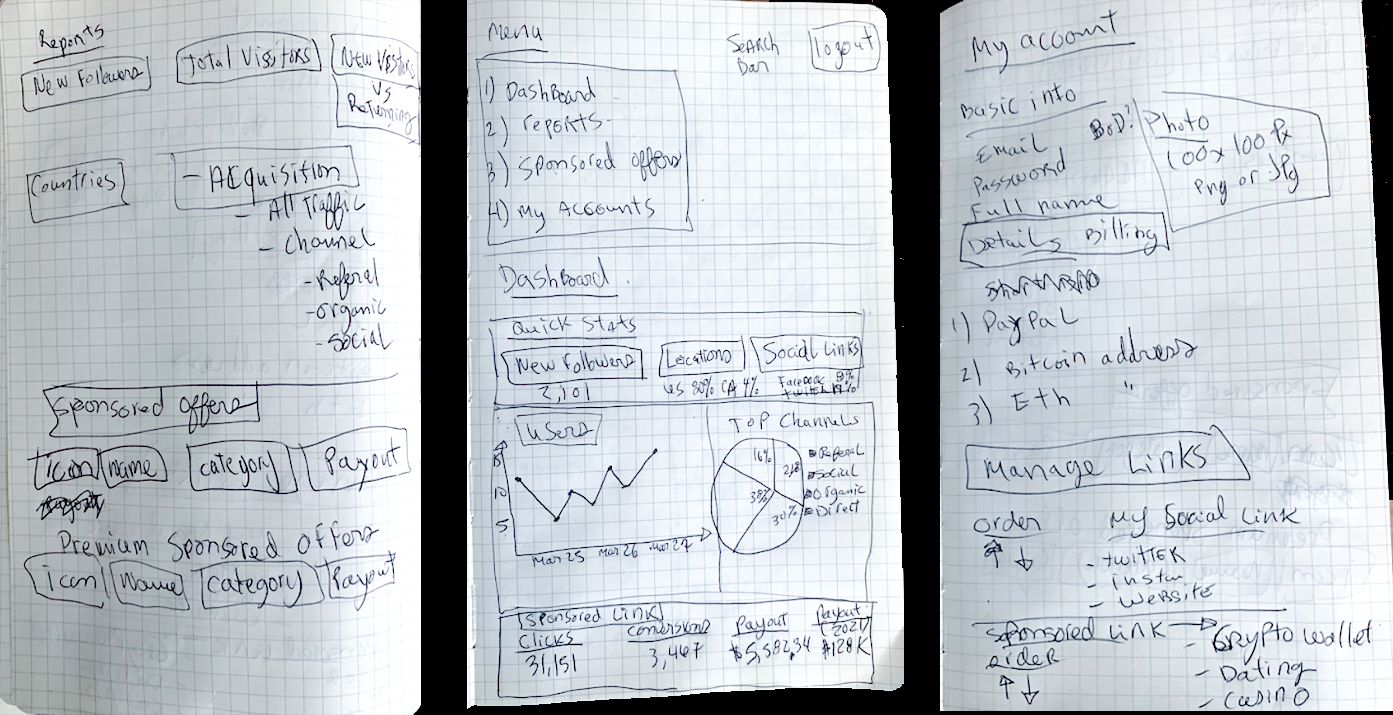 Reports
New Followers
Total Visitors
New Visitors
vs
Returning
Countries
- Acquisition
- All Traffic
- Channel
- Referal
- organic
- Social
Sponsored offers
icon name category Payout
Premium Sponsored Offers
icon Name category Payout
Menu
Search
Bar
logout
1) Dashboard
2) reports
3) Sponsored offers
4) My Accounts
Dashboard
Quick Stats
New Followers Locations Social Links
2,101 US 80% CA 4% Facebook 8%
twitch 19%
Users
10
5
Mar 25 Mar 26 Mar 27
Top Channels
16%
21%
38%
30%
Referal
Social
Organic
Direct
Sponsored Link
Clicks Conversions Payout Payout (2021)
31,151 3,467 $5,582,34 $128K
My account
Basic info
Email
BoD?
Password
Full name
Photo
100x100 Px
Png or Jpg
Details Billing
1) PayPal
2) Bitcoin address
3) Eth "
Manage Links
order My Social Link
- twitter
- insta
- website
Sponsored Link
order
- Crypto wallet
- Dating
- Casino